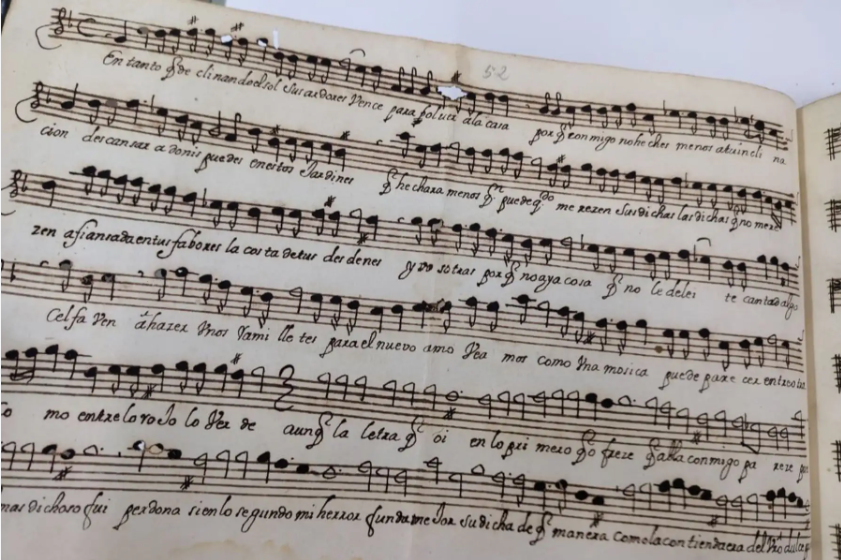 52
En tanto q̃ de clinando el sol sus ardores Vence para boluer a la casa por q̃ conmigo no he ches menos a tu ineli na
cion descansar adonis puedes en estos Jardines q̃ hechara menos q̃n puede q̃do merezen sus dichas las dichas q̃ no mere
zen afiansada en tus fabores la costa de tus desdenes y vosotras por q̃ no aya cosa q̃ no le delei te cantad algo
Celfa Ven a hazer Unos Rami lle tes para el nuevo amo Vea mos como Una mosica puede pare cer entre
mo entre lo rojo lo Ver de aunq̃ la letra q̃ oi en lo pri mero q̃ o freze q̃ habla conmigo pa reze
mas dichoso fui perdona si en lo segundo mi herror funda mejor su dicha de q̃ manera como la contienda era del